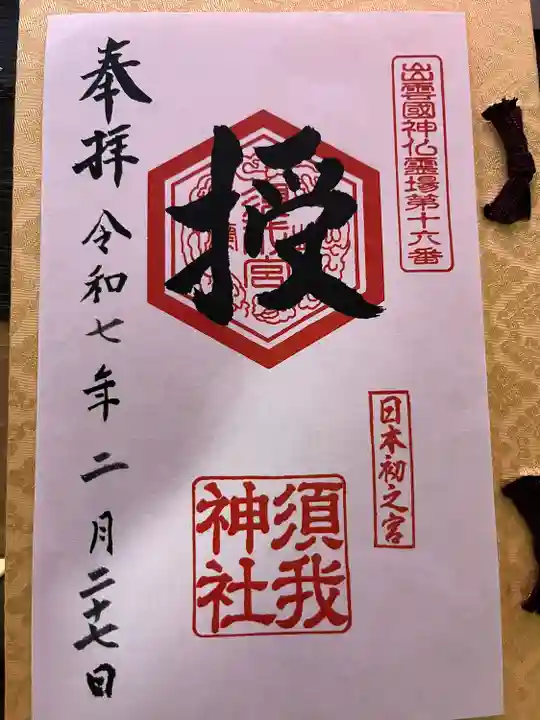 出雲國神仏霊場第十六番
日本初之宮
授
須我
神社
奉拝 令和七年二月二十七日